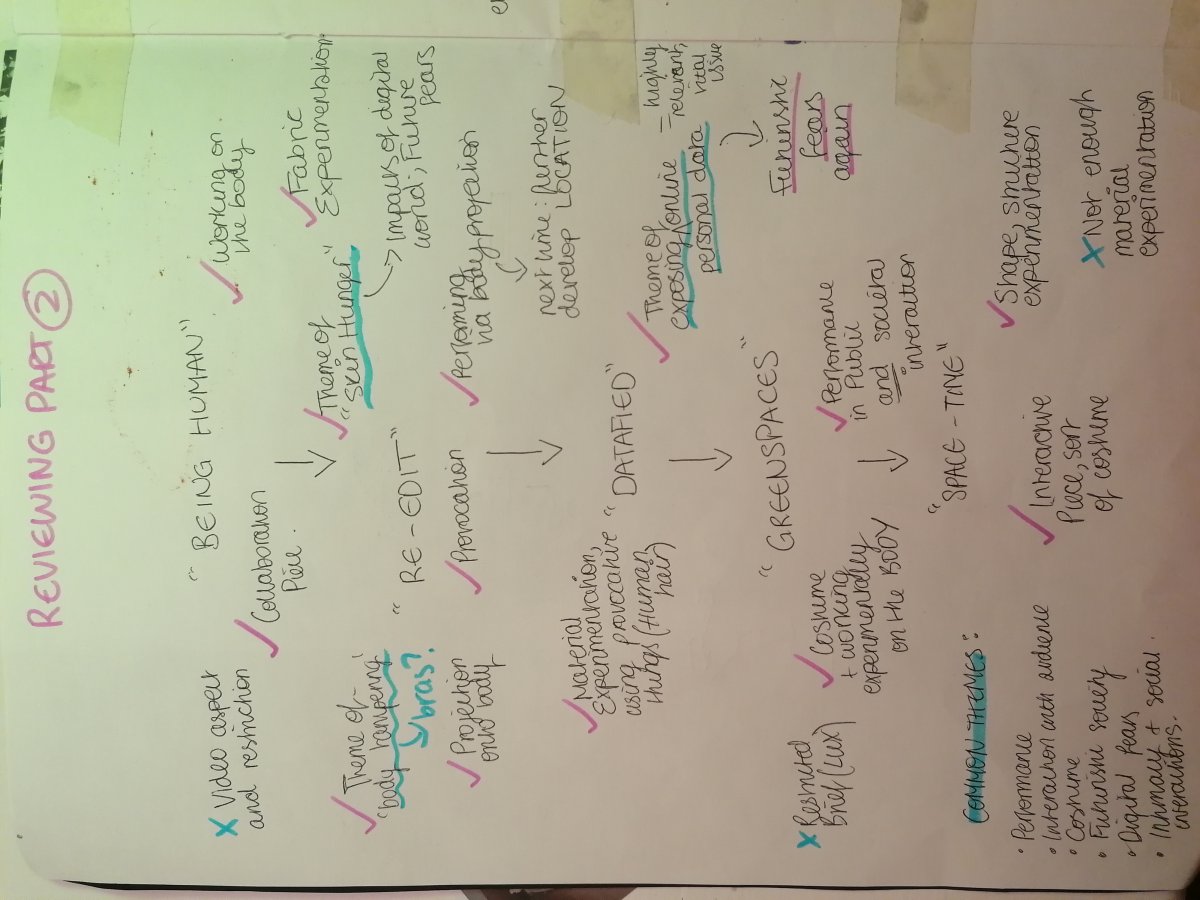 REVIEWING PART 2
"BEING HUMAN"
X Video aspect
and restriction
✓ Collaboration
Piece.
✓ Working on
the body
✓ Theme of
"body hampering'
→ bras?
✓ Theme of
"Skin Hunger"
→ Impacts of digital
world; Future
fears
✓ Fabric
Experimentation
"RE-EDIT"
✓ Projection
onto body
✓ Provocation
✓ Performing
via body projection
next time: further
develop LOCATION
"DATAFIED"
✓ Material
Experimentation,
using provocative
things (Human
hair)
✓ Theme of
exposing/online
personal data
= highly
relevant,
vital
issue
Futuristic
fears
again
"GREENSPACES"
X Restricted
Brief (Lux)
✓ Costume
+ working
experimentally
on the BODY
✓ Performance
in Public
and societal
interaction
"SPACE-TIME"
✓ Interactive
Piece, sort
of costume
✓ Shape, structure
experimentation
X Not enough
material
experimentation
COMMON THEMES:
• Performance
• Interaction with audience
• Costume
• Futuristic society
• Digital fears
• Intimacy + social
interactions.